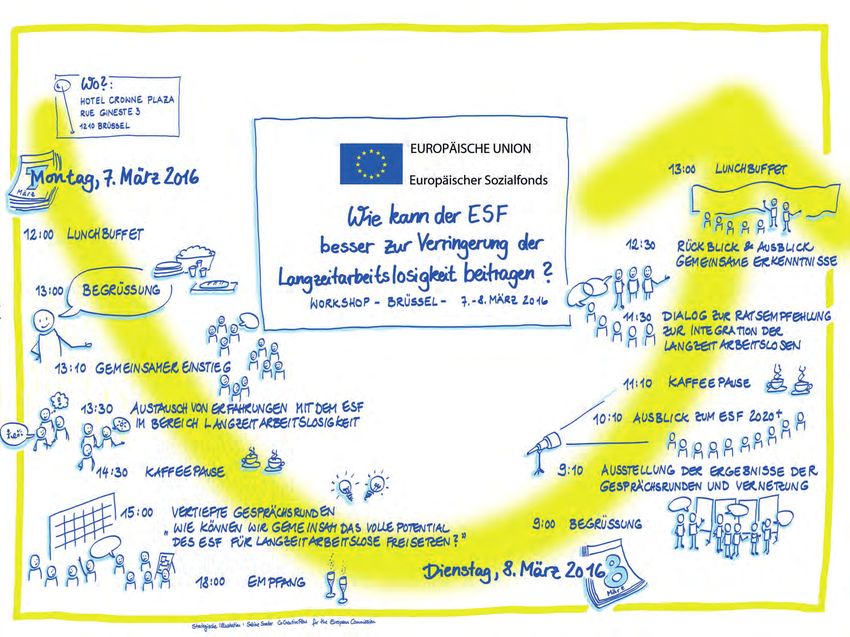 Wo?:
HOTEL CROWNE PLAZA
RUE GINESTE 3
1210 BRÜSSEL
März
Montag, 7. März 2016
12:00 LUNCHBUFFET
13:00 BEGRÜSSUNG
13:10 GEMEINSAMER EINSTIEG
13:30 AUSTAUSCH VON ERFAHRUNGEN MIT DEM ESF
IM BEREICH LANGZEITARBEITSLOSIGKEIT
14:30 KAFFEEPAUSE
15:00 VERTIEFTE GESPRÄCHSRUNDEN
„WIE KÖNNEN WIR GEMEINSAM DAS VOLLE POTENTIAL
DES ESF FÜR LANGZEITARBEITSLOSE FREISETZEN?"
18:00 EMPFANG
EUROPÄISCHE UNION
Europäischer Sozialfonds
Wie kann der ESF
besser zur Verringerung der
Langzeitarbeitslosigkeit beitragen?
WORKSHOP - BRÜSSEL - 7.-8. MÄRZ 2016
13:00 LUNCHBUFFET
12:30 RÜCKBLICK & AUSBLICK
GEMEINSAME ERKENNTNISSE
11:30 DIALOG ZUR RATSEMPFEHLUNG
ZUR INTEGRATION DER
LANGZEITARBEITSLOSEN
11:10 KAFFEEPAUSE
10:10 AUSBLICK ZUM ESF 2020+
9:10 AUSSTELLUNG DER ERGEBNISSE DER
GESPRÄCHSRUNDEN UND VERNETZUNG
9:00 BEGRÜSSUNG
Dienstag, 8. März 2016
8
März
Strategische Illustration: Sabine Soeder CoCreativeFlow for the European Commission